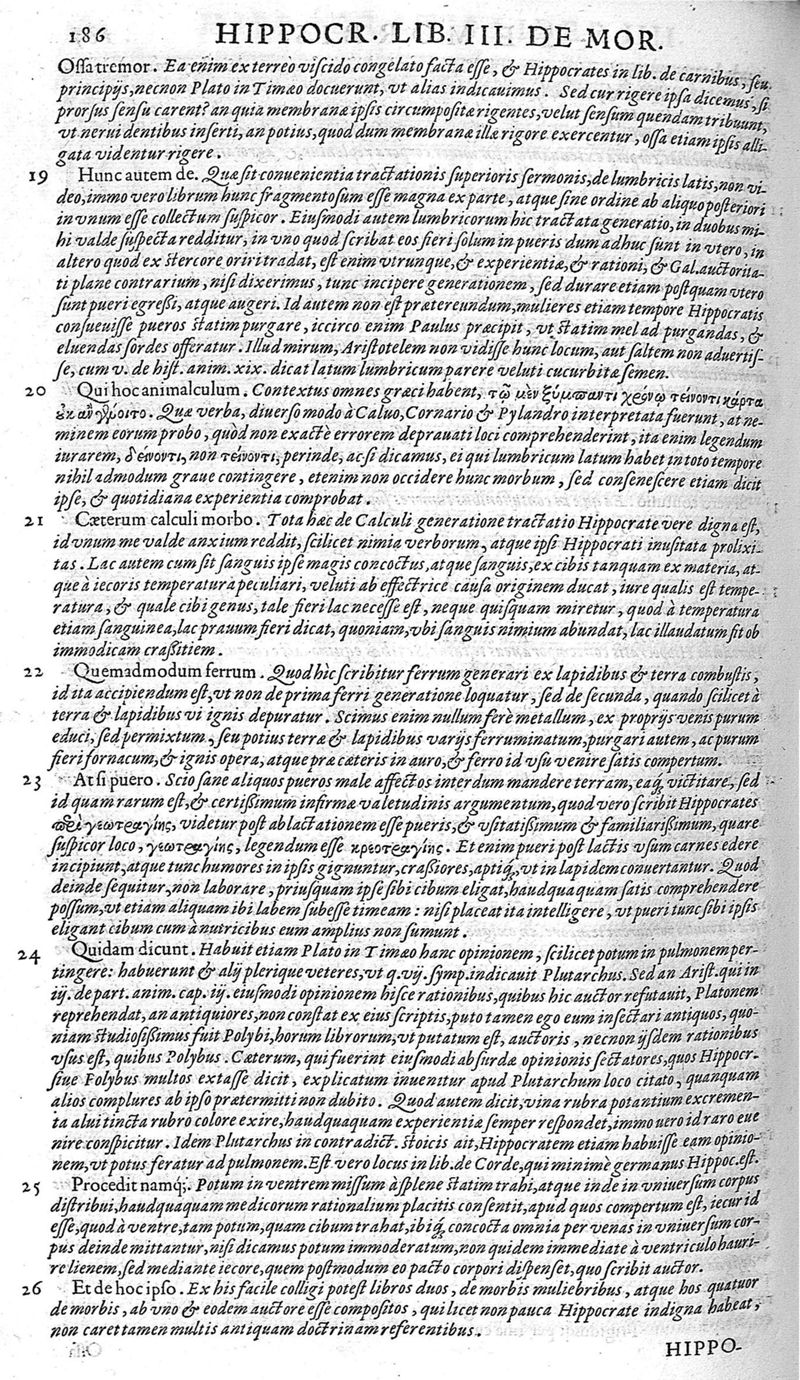 186 HIPPOCR. LIB. III. DE MOR.
Ossa tremor. Ea enim ex terreo viscido congelato facta esse, & Hippocrates in lib. de carnibus, seu
principijs, necnon Plato in Timæo docuerunt, vt alias indicauimus. Sed cur rigere ipsa dicemus, si
prorsus sensu carent? an quia membranæ ipsis circumpositæ rigentes, velut sensum quendam tribuunt,
vt nerui dentibus inserti, an potius, quod dum membranæ illæ rigore exercentur, ossa etiam ipsis alli-
gata videntur rigere.
19 Hunc autem de. Quæ sit conuenientia tractationis superioris sermonis, de lumbricis latis, non vi-
deo, immo vero librum hunc fragmentosum esse magna ex parte, atque sine ordine ab aliquo posteriori
in vnum esse collectum suspicor. Eiusmodi autem lumbricorum hic tractata generatio, in duobus mi-
hi valde suspecta redditur, in vno quod scribat eos fieri solum in pueris dum adhuc sunt in vtero, in
altero quod ex stercore oriri tradat, est enim vtrunque, & experientiæ, & rationi, & Gal. auctorita-
ti plane contrarium, nisi dixerimus, tunc incipere generationem, sed durare etiam postquam vtero
sunt pueri egreßi, atque augeri. Id autem non est prætereundum, mulieres etiam tempore Hippocratis
consueuisse pueros statim purgare, iccirco enim Paulus præcipit, vt statim mel ad purgandas, &
eluendas sordes offeratur. Illud mirum, Aristotelem non vidisse hunc locum, aut saltem non aduertis-
se, cum v. de hist. anim. xix. dicat latum lumbricum parere veluti cucurbitæ semen.
20 Qui hoc animalculum. Contextus omnes græci habent, τῷ μὲν ξύμπαντι χρόνῳ τείνοντι κάρτα
ἐκ ἂν γένοιτο. Quæ verba, diuerso modo à Caluo, Cornario & Pylandro interpretata fuerunt, at ne-
minem eorum probo, quòd non exactè errorem deprauati loci comprehenderint, ita enim legendum
iurarem, δείνοντι, non τείνοντι, perinde, ac si dicamus, ei qui lumbricum latum habet in toto tempore
nihil admodum graue contingere, etenim non occidere hunc morbum, sed consenescere etiam dicit
ipse, & quotidiana experientia comprobat.
21 Cæterum calculi morbo. Tota hæc de Calculi generatione tractatio Hippocrate vere digna est,
id vnum me valde anxium reddit, scilicet nimia verborum, atque ipsi Hippocrati inusitata prolixi-
tas. Lac autem cum sit sanguis ipse magis concoctus, atque sanguis, ex cibis tanquam ex materia, at-
que à iecoris temperatura peculiari, veluti ab effectrice causa originem ducat, iure qualis est tempe-
ratura, & quale cibi genus, tale fieri lac necesse est, neque quisquam miretur, quod à temperatura
etiam sanguinea, lac prauum fieri dicat, quoniam, vbi sanguis nimium abundat, lac illaudatum fit ob
immodicam craßitiem.
22 Quemadmodum ferrum. Quod hic scribitur ferrum generari ex lapidibus & terra combustis,
id ita accipiendum est, vt non de prima ferri generatione loquatur, sed de secunda, quando scilicet à
terra & lapidibus vi ignis depuratur. Scimus enim nullum ferè metallum, ex proprijs venis purum
educi, sed permixtum, seu potius terræ & lapidibus varijs ferruminatum, purgari autem, ac purum
fieri fornacum, & ignis opera, atque præ cæteris in auro, & ferro id vsu venire satis compertum.
23 At si puero. Scio sane aliquos pueros male affectos interdum mandere terram, eaq́; victitare, sed
id quam rarum est, & certißimum infirmæ valetudinis argumentum, quod vero scribit Hippocrates
περὶ γεωτραγίης, videtur post ablactationem esse pueris, & vsitatißimum & familiarißimum, quare
suspicor loco, γεωτραγίης, legendum esse κρεοτραγίης. Et enim pueri post lactis vsum carnes edere
incipiunt, atque tunc humores in ipsis gignuntur, craßiores, aptiq́;, vt in lapidem conuertantur. Quod
deinde sequitur, non laborare, priusquam ipse sibi cibum eligat, haudquaquam satis comprehendere
possum, vt etiam aliquam ibi labem subesse timeam: nisi placeat ita intelligere, vt pueri tunc sibi ipsis
eligant cibum cum à nutricibus eum amplius non sumunt.
24 Quidam dicunt. Habuit etiam Plato in Timæo hanc opinionem, scilicet potum in pulmonem per-
tingere: habuerunt & alij plerique veteres, vt q. vij. symp. indicauit Plutarchus. Sed an Arist. qui in
iij. de part. anim. cap. iij. eiusmodi opinionem hisce rationibus, quibus hic auctor refutauit, Platonem
reprehendat, an antiquiores, non constat ex eius scriptis, puto tamen ego eum insectari antiquos, quo-
niam studiosißimus fuit Polybi, horum librorum, vt putatum est, auctoris, necnon ijsdem rationibus
vsus est, quibus Polybus. Cæterum, qui fuerint eiusmodi absurdæ opinionis sectatores, quos Hippocr.
siue Polybus multos extasse dicit, explicatum inuenitur apud Plutarchum loco citato, quanquam
alios complures ab ipso prætermitti non dubito. Quod autem dicit, vina rubra potantium excremen-
ta alui tincta rubro colore exire, haudquaquam experientiæ semper respondet, immo vero id raro eue
nire conspicitur. Idem Plutarchus in contradict. stoicis ait, Hippocratem etiam habuisse eam opinio-
nem, vt potus feratur ad pulmonem. Est vero locus in lib. de Corde, qui minimè germanus Hippoc. est.
25 Procedit namq́;. Potum in ventrem missum à splene statim trahi, atque inde in vniuersum corpus
distribui, haudquaquam medicorum rationalium placitis consentit, apud quos compertum est, iecur id
esse, quod à ventre, tam potum, quam cibum trahat, ibiq́; concocta omnia per venas in vniuersum cor-
pus deinde mittantur, nisi dicamus potum immoderatum, non quidem immediate à ventriculo hauri-
re lienem, sed mediante iecore, quem postmodum eo pacto corpori dispenset, quo scribit auctor.
26 Et de hoc ipso. Ex his facile colligi potest libros duos, de morbis muliebribus, atque hos quatuor
de morbis, ab vno & eodem auctore esse compositos, qui licet non pauca Hippocrate indigna habeat,
non caret tamen multis antiquam doctrinam referentibus.
HIPPO-